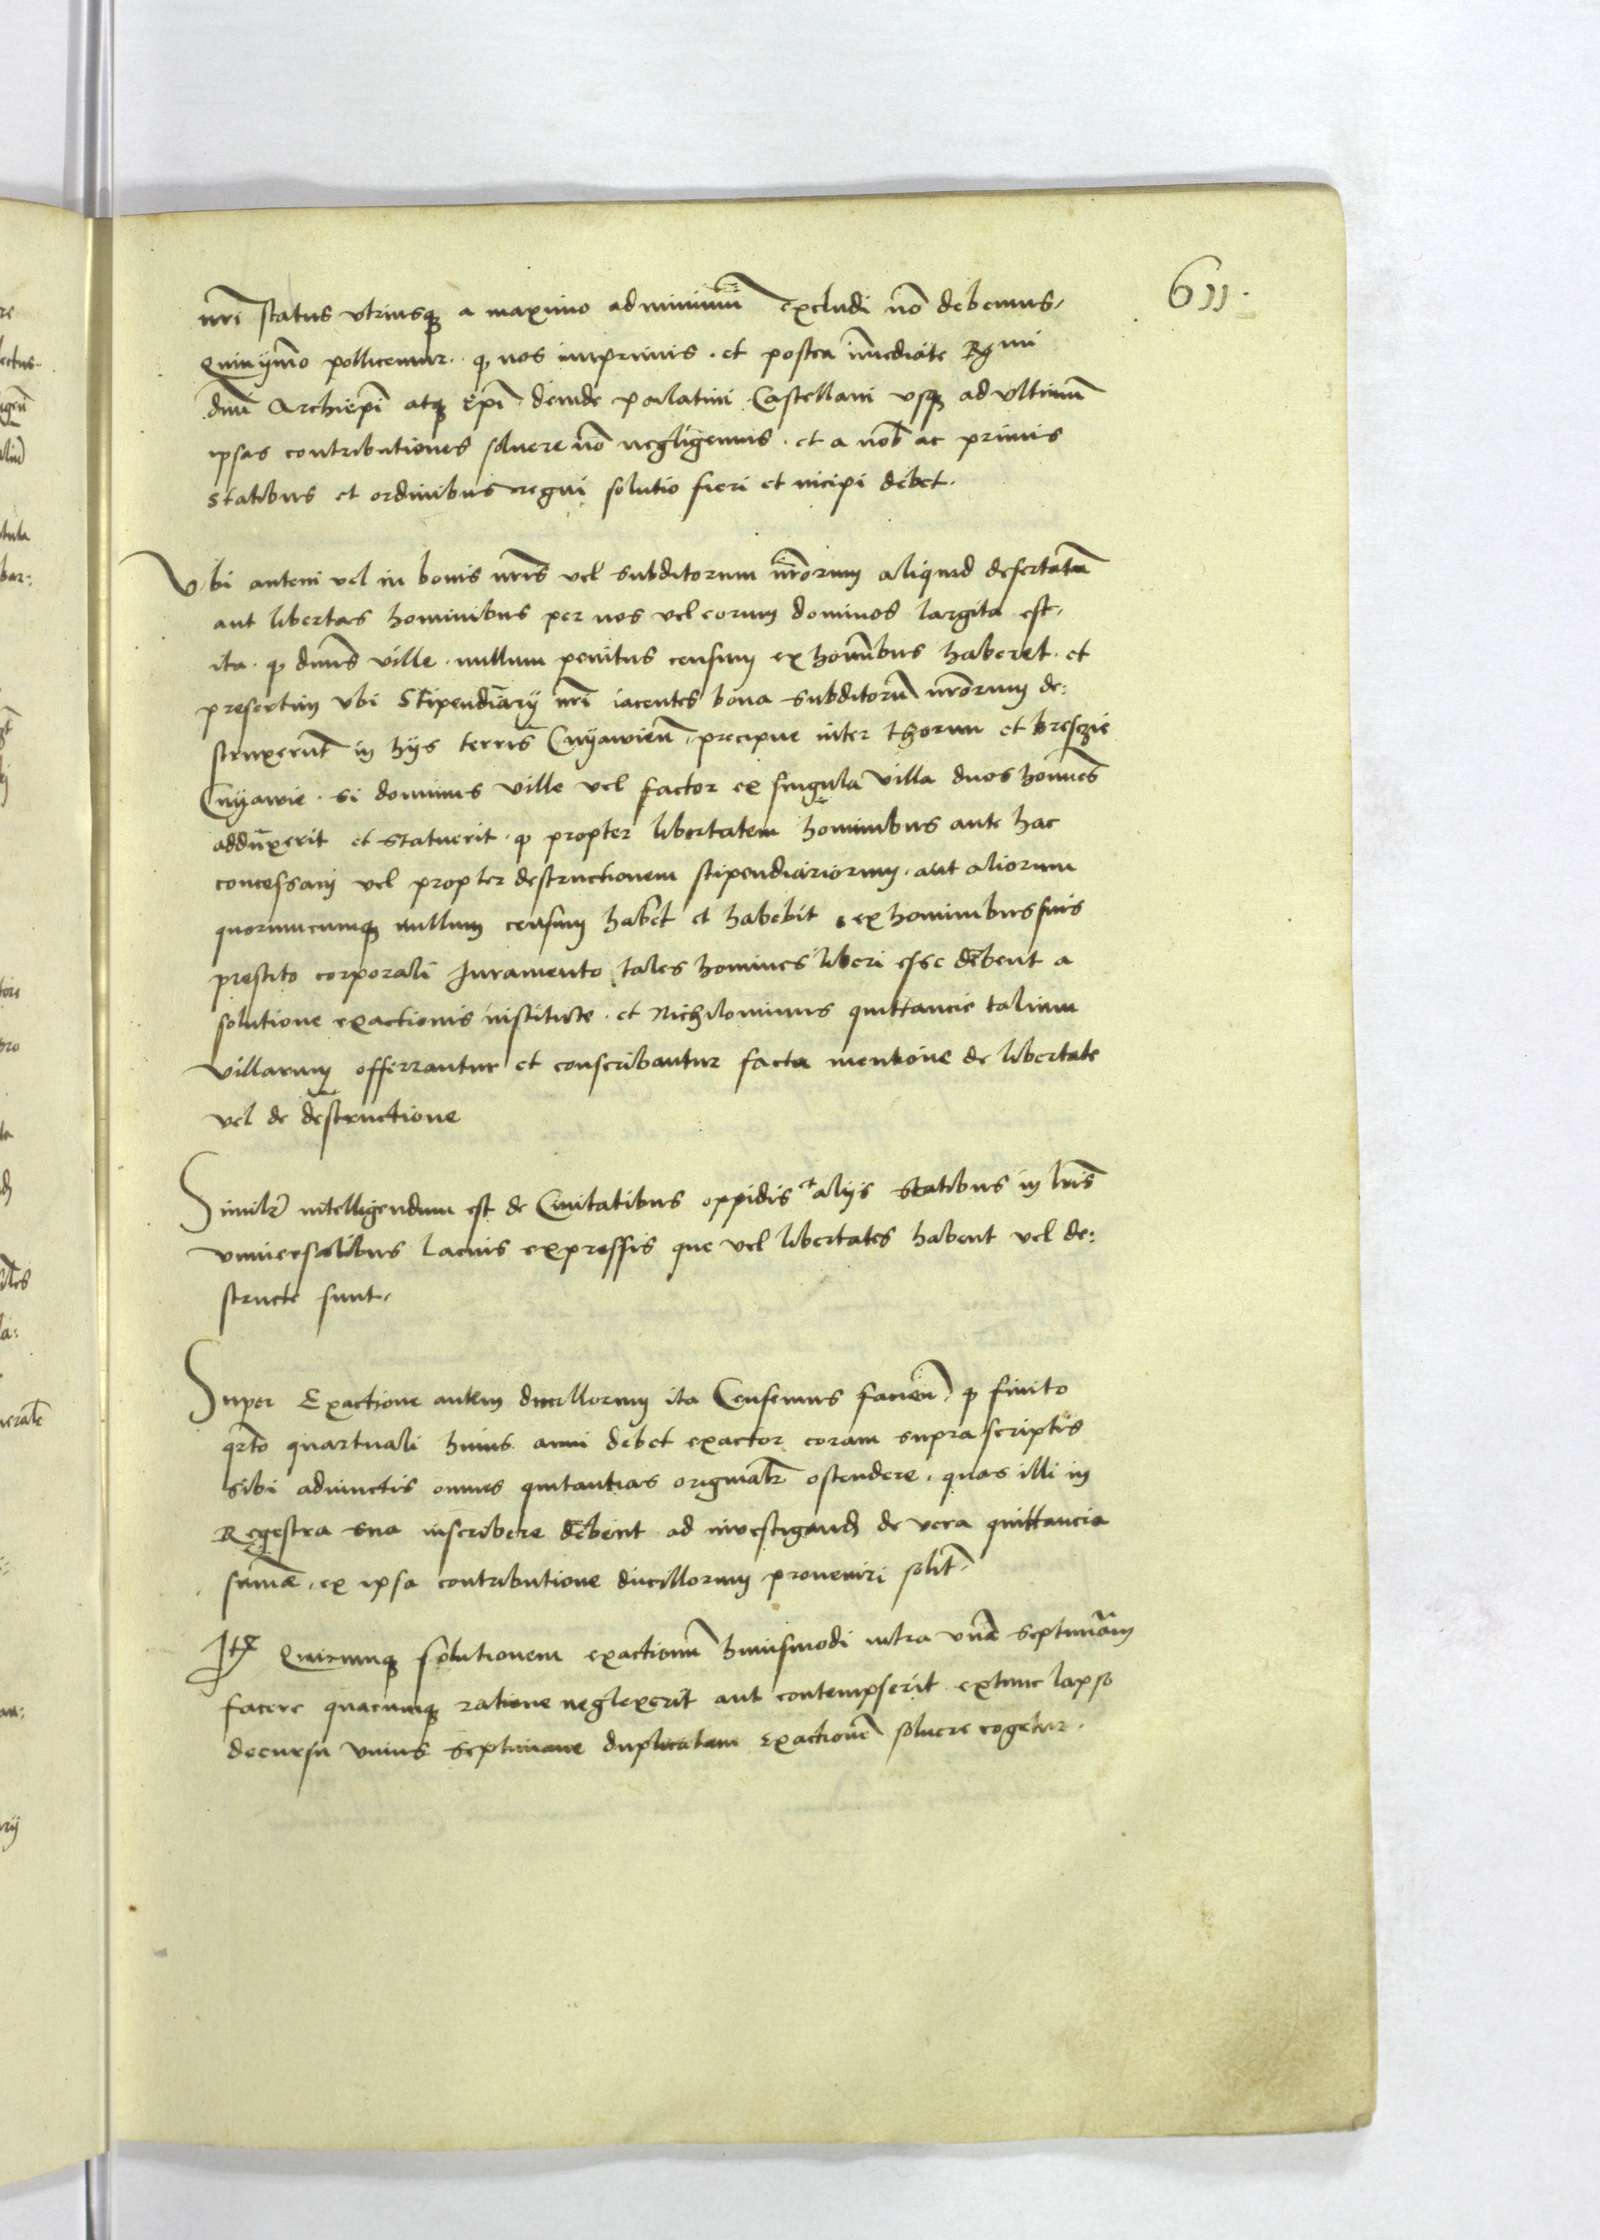 611.
nri status vtriusq a maximo ad minimu excludi no debemus.
Quinymo pollicemur. q nos imprimis. et postea imediate Rgmi
dni Archiepi atq Epi. deinde Palatini. Castellani vsq ad vltimu
ipsas contributiones soluere no negligemus. et a nob ac primis
statibus et ordinibus regni solutio fieri et incipi debet.
Vbi autem vel in bonis nris vel subditorum nrorum aliquid desertatu
aut libertas hominibus per nos vel eorum dominos largita est.
ita. q dnus ville. nullum penitus censum ex hominibus haberet. et
presertim vbi Stipendiarij nri iacentes bona subditoru nrorum de:
struxerunt in hijs terris Cuyawien. precipue inter Thorun et bresczie
Cuyawie. si dominus ville vel factor ex singula villa duos homines
adduxerit et statuerit. q propter libertatem hominibus ante hac
concessam vel propter destructionem stipendiariorum. aut aliorum
quorumcumq nullum censum habet et habebit ex hominibus suis
prestito corporali Iuramento tales homines liberi esse debent a
solutione exactionis institute. et Nichilominus quittancie talium
villarum offerrantur et conscribantur facta mentione de libertate
vel de destructione
Similr intelligendum est de Ciuitatibus oppidis et alijs statibus in lris
vniuersalibus lacius expressis que vel libertates habent vel de:
structe sunt.
Super Exactione autem ducillorum ita Censemus facien. q finito
qrto quartuali huius anni debet exactor coram supra scriptis
sibi adiunctis omnes quitantias originalr ostendere. quas illi in
Regestra sua inscribere debent ad inuestigand de vera quittancia
sumae. ex ipsa contributione ducillorum proueniri solit.
Itm Quicumq solutionem exactionu huiusmodi intra vna septimanam
facere quacumq ratione neglexerit aut contempserit extunc lapso
decursu vnius septimane duplicatam exactione soluere cogetur.